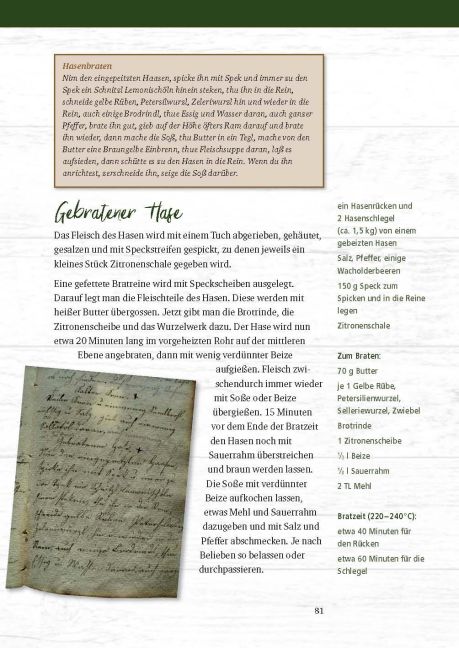 Hasenbraten
Nim den eingepeitzten Haasen, spicke ihn mit Spek und immer su den
Spek ein Schnitzl Lemonischöln hinein steken, thu ihn in die Rein,
schneide gelbe Rüben, Petersilwursl, Zeleriwursl hin und wieder in die
Rein, auch einige Brodrindl, thue Essig und Wasser daran, auch ganser
Pfeffer, brate ihn gut, gieb auf der Höhe öfters Ram darauf und brate
ihn wieder, dann mache die Soß, thu Butter in ein Tegl, mache von den
Butter eine Braungelbe Einbrenn, thue Fleischsuppe daran, laß es
aufsieden, dann schütte es su den Hasen in die Rein. Wenn du ihn
anrichtest, serschneide ihn, seige die Soß darüber.
Gebratener Hase
Das Fleisch des Hasen wird mit einem Tuch abgerieben, gehäutet,
gesalzen und mit Speckstreifen gespickt, zu denen jeweils ein
kleines Stück Zitronenschale gegeben wird.
Eine gefettete Bratreine wird mit Speckscheiben ausgelegt.
Darauf legt man die Fleischteile des Hasen. Diese werden mit
heißer Butter übergossen. Jetzt gibt man die Brotrinde, die
Zitronenscheibe und das Wurzelwerk dazu. Der Hase wird nun
etwa 20 Minuten lang im vorgeheizten Rohr auf der mittleren
Ebene angebraten, dann mit wenig verdünnter Beize
aufgießen. Fleisch zwi-
schendurch immer wieder
mit Soße oder Beize
übergießen. 15 Minuten
vor dem Ende der Bratzeit
den Hasen noch mit
Sauerrahm überstreichen
und braun werden lassen.
Die Soße mit verdünnter
Beize aufkochen lassen,
etwas Mehl und Sauerrahm
dazugeben und mit Salz und
Pfeffer abschmecken. Je nach
Belieben so belassen oder
durchpassieren.
ein Hasenrücken und
2 Hasenschlegel
(ca. 1,5 kg) von einem
gebeizten Hasen
Salz, Pfeffer, einige
Wacholderbeeren
150 g Speck zum
Spicken und in die Reine
legen
Zitronenschale
Zum Braten:
70 g Butter
je 1 Gelbe Rübe,
Petersilienwurzel,
Selleriewurzel, Zwiebel
Brotrinde
1 Zitronenscheibe
l Beize
l Sauerrahm
2 TL Mehl
Bratzeit (220–240°C):
etwa 40 Minuten für
den Rücken
etwa 60 Minuten für die
Schlegel
81